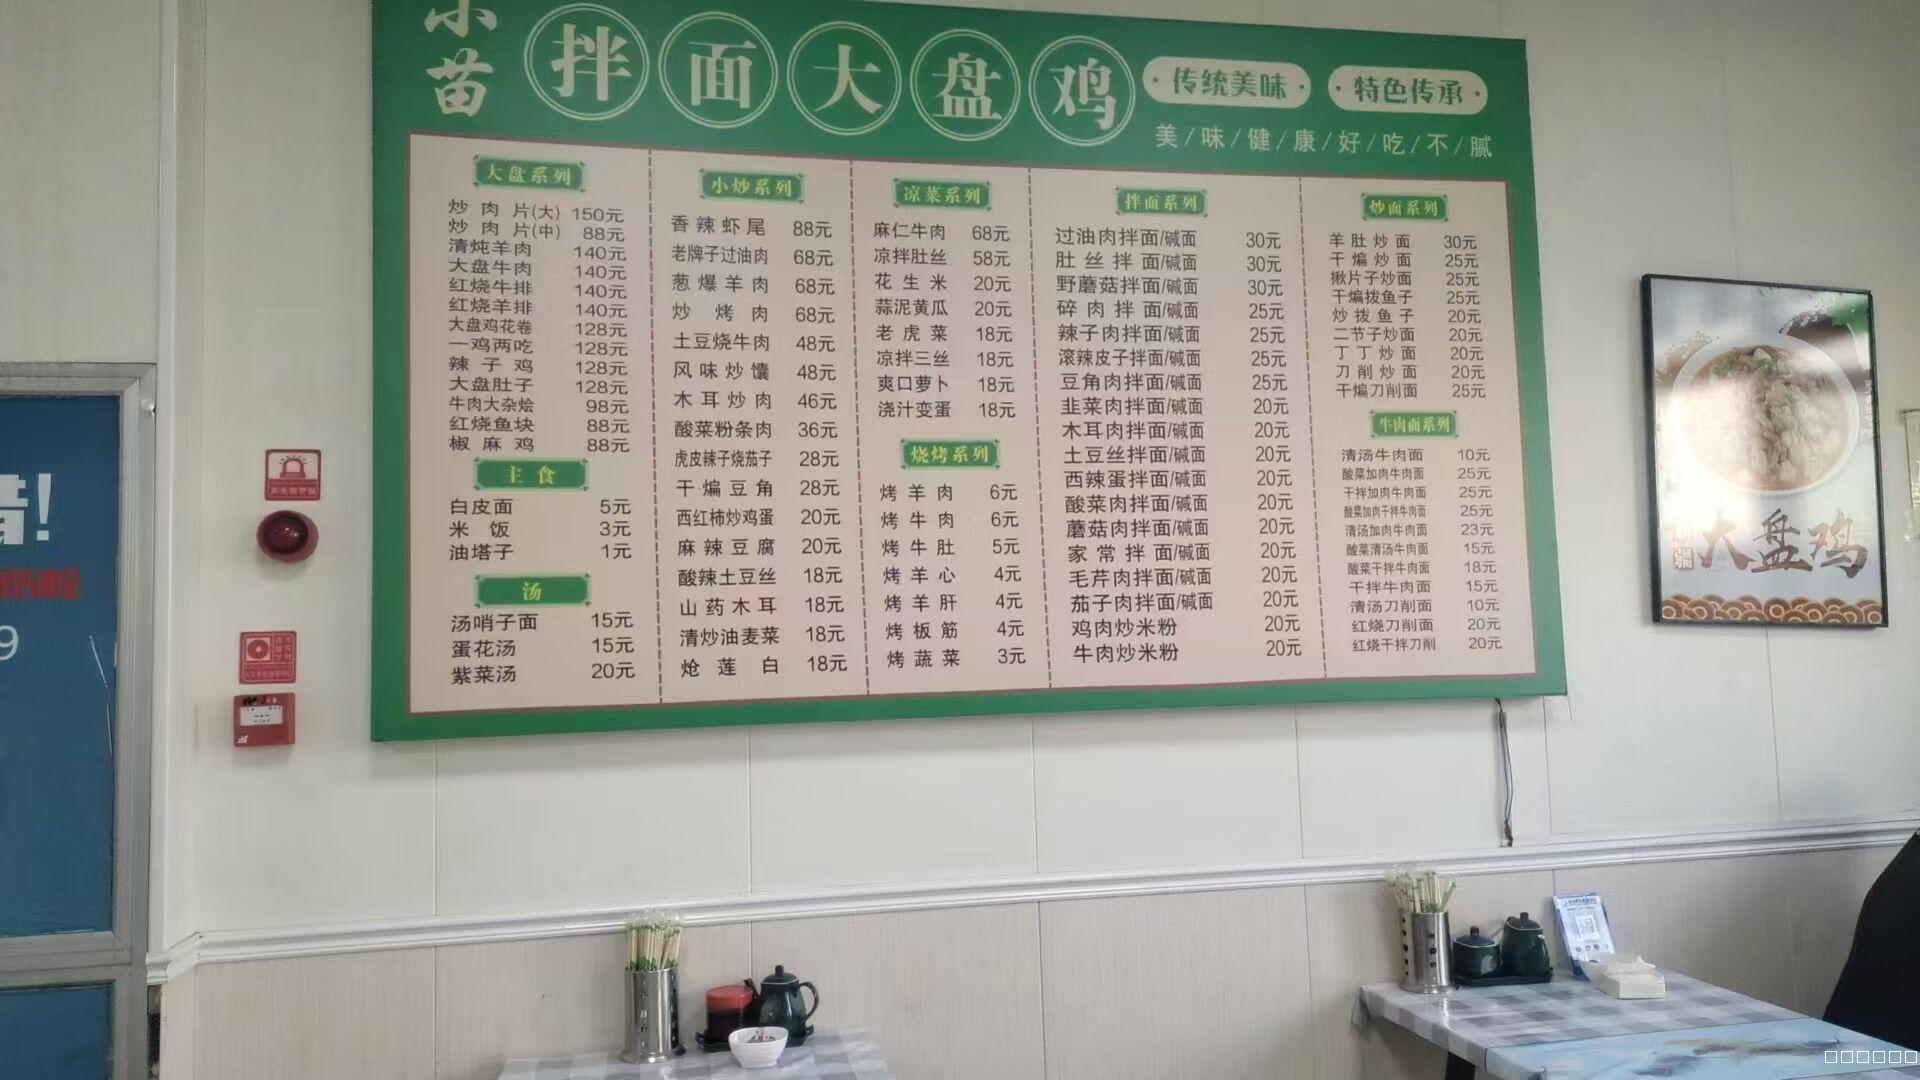 小苗
拌面大盘鸡
传统美味
特色传承
美/味/健/康/好/吃/不/腻
大盘系列
炒肉片(大) 150元
炒肉片(中) 88元
清炖羊肉 140元
大盘牛肉 140元
红烧牛排 140元
红烧羊排 140元
大盘鸡花卷 128元
一鸡两吃 128元
辣子鸡 128元
大盘肚子 128元
牛肉大杂烩 98元
红烧鱼块 88元
椒麻鸡 88元
主食
白皮面 5元
米饭 3元
油塔子 1元
汤
汤哨子面 15元
蛋花汤 15元
紫菜汤 20元
小炒系列
香辣虾尾 88元
老牌子过油肉 68元
葱爆羊肉 68元
炒烤肉 68元
土豆烧牛肉 48元
风味炒馕 48元
木耳炒肉 46元
酸菜粉条肉 36元
虎皮辣子烧茄子 28元
干煸豆角 28元
西红柿炒鸡蛋 20元
麻辣豆腐 20元
酸辣土豆丝 18元
山药木耳 18元
清炒油麦菜 18元
炝莲白 18元
凉菜系列
麻仁牛肉 68元
凉拌肚丝 58元
花生米 20元
蒜泥黄瓜 20元
老虎菜 18元
凉拌三丝 18元
爽口萝卜 18元
浇汁变蛋 18元
烧烤系列
烤羊肉 6元
烤牛肉 6元
烤牛肚 5元
烤羊心 4元
烤羊肝 4元
烤板筋 4元
烤蔬菜 3元
拌面系列
过油肉拌面/碱面 30元
肚丝拌面/碱面 30元
野蘑菇拌面/碱面 30元
碎肉拌面/碱面 25元
辣子肉拌面/碱面 25元
滚辣皮子拌面/碱面 25元
豆角肉拌面/碱面 25元
韭菜肉拌面/碱面 20元
木耳肉拌面/碱面 20元
土豆丝拌面/碱面 20元
西辣蛋拌面/碱面 20元
酸菜肉拌面/碱面 20元
蘑菇肉拌面/碱面 20元
家常拌面/碱面 20元
毛芹肉拌面/碱面 20元
茄子肉拌面/碱面 20元
鸡肉炒米粉 20元
牛肉炒米粉 20元
炒面系列
羊肚炒面 30元
干煸炒面 25元
揪片子炒面 25元
干煸拨鱼子 25元
炒拨鱼子 20元
二节子炒面 20元
丁丁炒面 20元
刀削炒面 20元
干煸刀削面 25元
牛肉面系列
清汤牛肉面 10元
酸菜加肉牛肉面 25元
干拌加肉牛肉面 25元
酸菜加肉干拌牛肉面 25元
清汤加肉牛肉面 23元
酸菜清汤牛肉面 15元
酸菜干拌牛肉面 18元
干拌牛肉面 15元
清汤刀削面 10元
红烧刀削面 20元
红烧干拌刀削 20元
大盘鸡
9